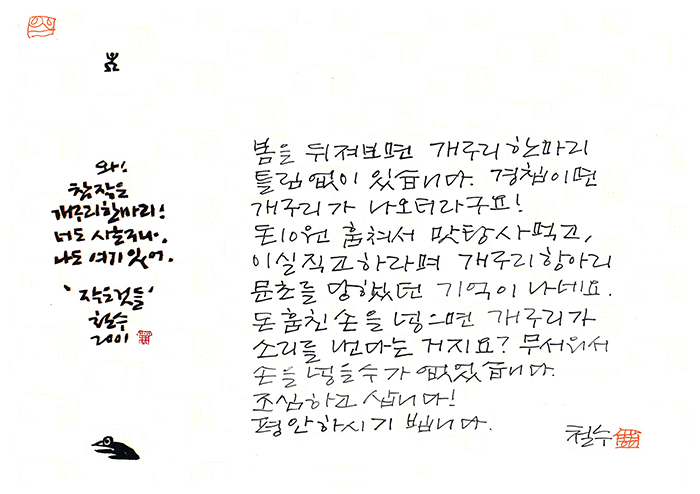 와!
참 작은
개구리 한마리!
너도 사는구나.
나도 여기 있어.
'작은것들'
철수
2001
봄을 뒤져보면 개구리 한마리
틀림 없이 있습니다. 경칩이면
개구리가 나오더라구요!
돈10원 훔쳐서 맛탕 사먹고,
이실직고하라며 개구리 항아리
문초를 당했던 기억이 나네요.
돈 훔친 손을 넣으면 개구리가
소리를 낸다는 거지요? 무서워서
손을 넣을수가 없었습니다.
조심하고 삽니다!
평안하시기 빕니다.
철수